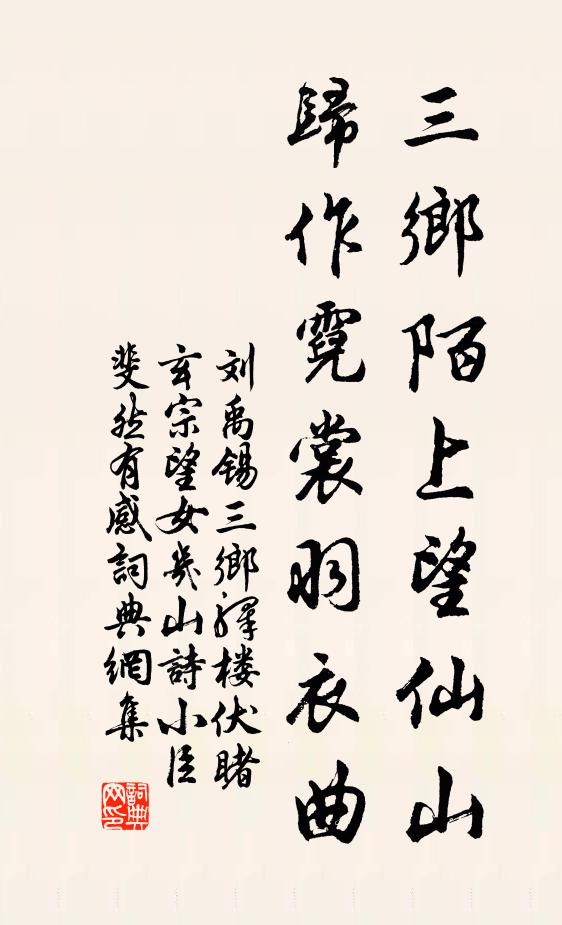 三鄉陌上望仙山
歸作霓裳羽衣曲
刘禹锡三鄉驛楼伏睹
玄宗望女几山詩小臣
斐然有感詞典網集
詞典网印